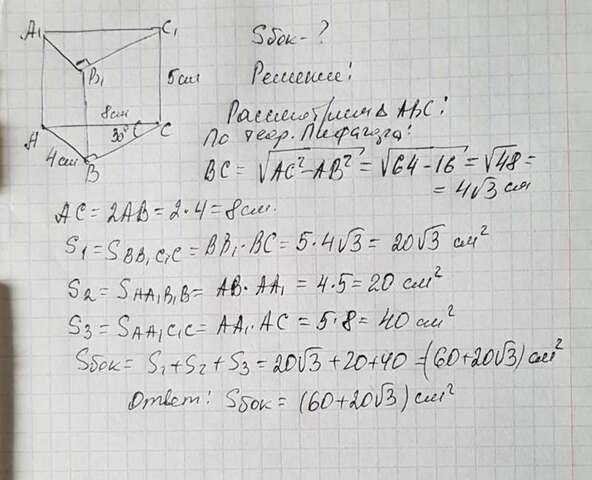 A₁ C₁
B₁
5см
8см
A 30° C
4см
B
Sбок - ?
Решение:
Рассмотрим Δ ABC:
По теор. Пифагора:
BC = √AC² - AB² = √64 - 16 = √48 =
= 4√3 см
AC = 2AB = 2·4 = 8см.
S₁ = S BB₁C₁C = BB₁·BC = 5·4√3 = 20√3 см²
S₂ = S AA₁B₁B = AB·AA₁ = 4·5 = 20 см²
S₃ = S AA₁C₁C = AA₁·AC = 5·8 = 40 см²
Sбок = S₁+S₂+S₃ = 20√3 + 20 + 40 = (60+20√3) см²
Ответ: Sбок = (60+20√3) см²